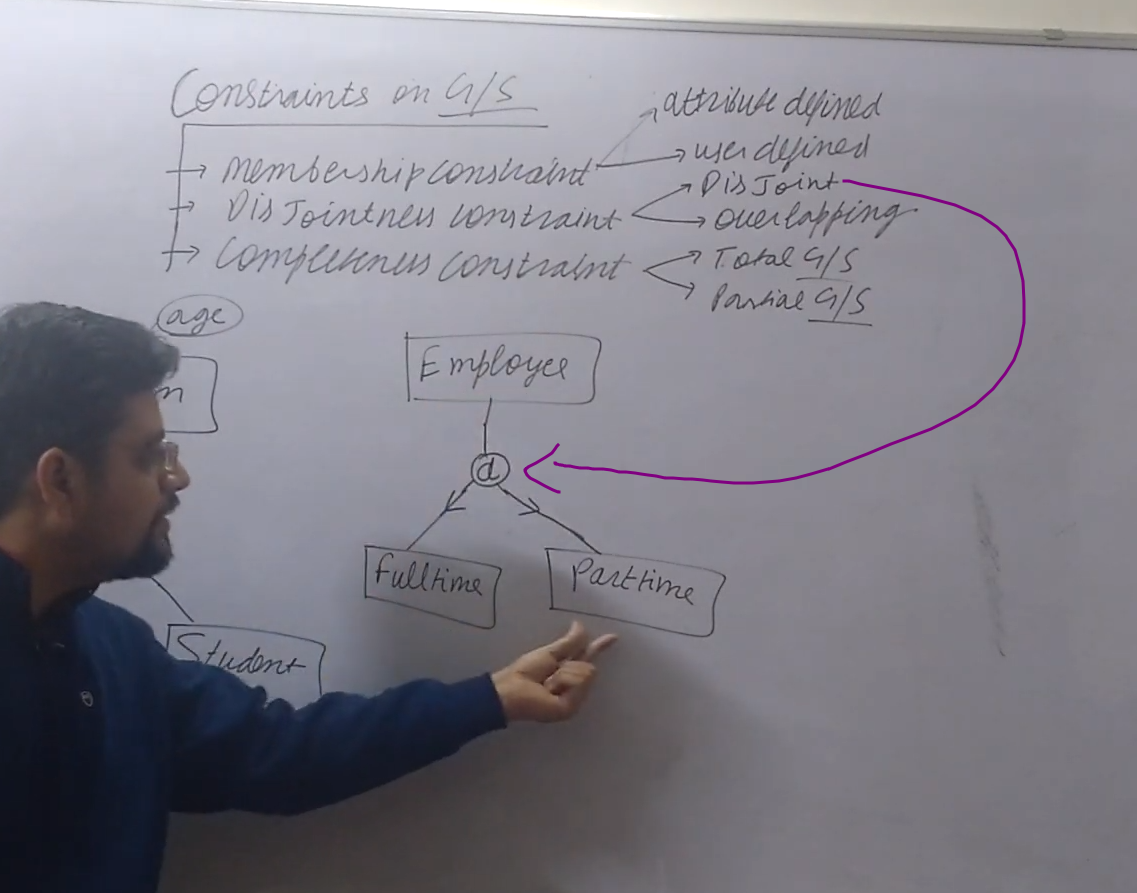 Constraints on G/S
attribute defined
→ Membership constraint → user defined
→ DisJointness constraint → DisJoint
→ overlapping
→ Completeness constraint → Total G/S
→ Partial G/S
age
n
Employee
d
Fulltime
Parttime
Student